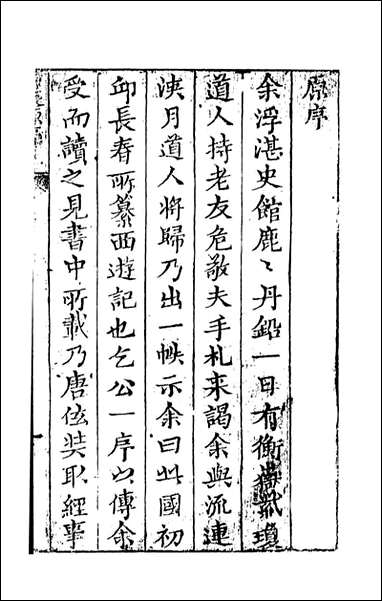 原序
余浮湛史館鹿〻丹鉛一日有衡嶽紫瓊
道人持老友危敬夫手札來謁余與流連
浹月道人將歸乃出一帙示余曰此國初
邱長春所纂西遊記也乞公一序以傳余
受而讀之見書中所載乃唐玄奘取經事